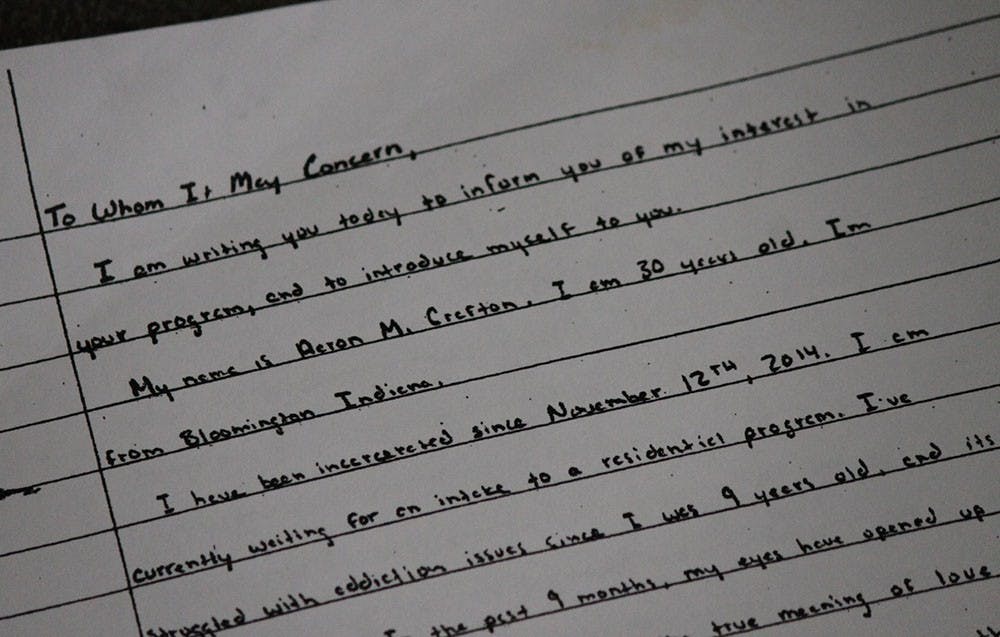 To Whom It May Concern,
I am writing you today to inform you of my interest in
your program, and to introduce myself to you.
My name is Aaron M. Crafton. I am 30 years old. Im
from Bloomington Indiana.
I have been incarcerated since November 12TH, 2014. I am
currently waiting for an intake to a residential program. I've
struggled with addiction issues since I was 9 years old, and its
the past 9 months, my eyes have opened up
true meaning of love